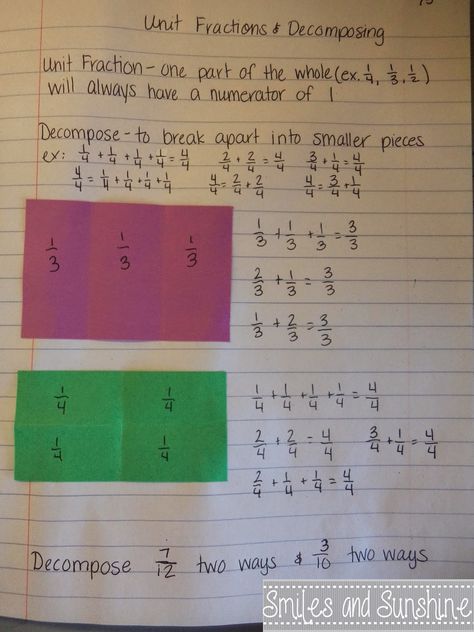 Unit Fractions & Decomposing
Unit Fraction - one part of the whole (ex. 1/4, 1/3, 1/2)
will always have a numerator of 1
Decompose - to break apart into smaller pieces
ex: 1/4 + 1/4 + 1/4 + 1/4 = 4/4   2/4 + 2/4 = 4/4   3/4 + 1/4 = 4/4
4/4 = 1/4 + 1/4 + 1/4 + 1/4   4/4 = 2/4 + 2/4   4/4 = 3/4 + 1/4
1/3 1/3 1/3
1/3 + 1/3 + 1/3 = 3/3
2/3 + 1/3 = 3/3
1/3 + 2/3 = 3/3
1/4 1/4
1/4 1/4
1/4 + 1/4 + 1/4 + 1/4 = 4/4
2/4 + 2/4 = 4/4   3/4 + 1/4 = 4/4
2/4 + 1/4 + 1/4 = 4/4
Decompose 7/12 two ways & 3/10 two ways
Smiles and Sunshine